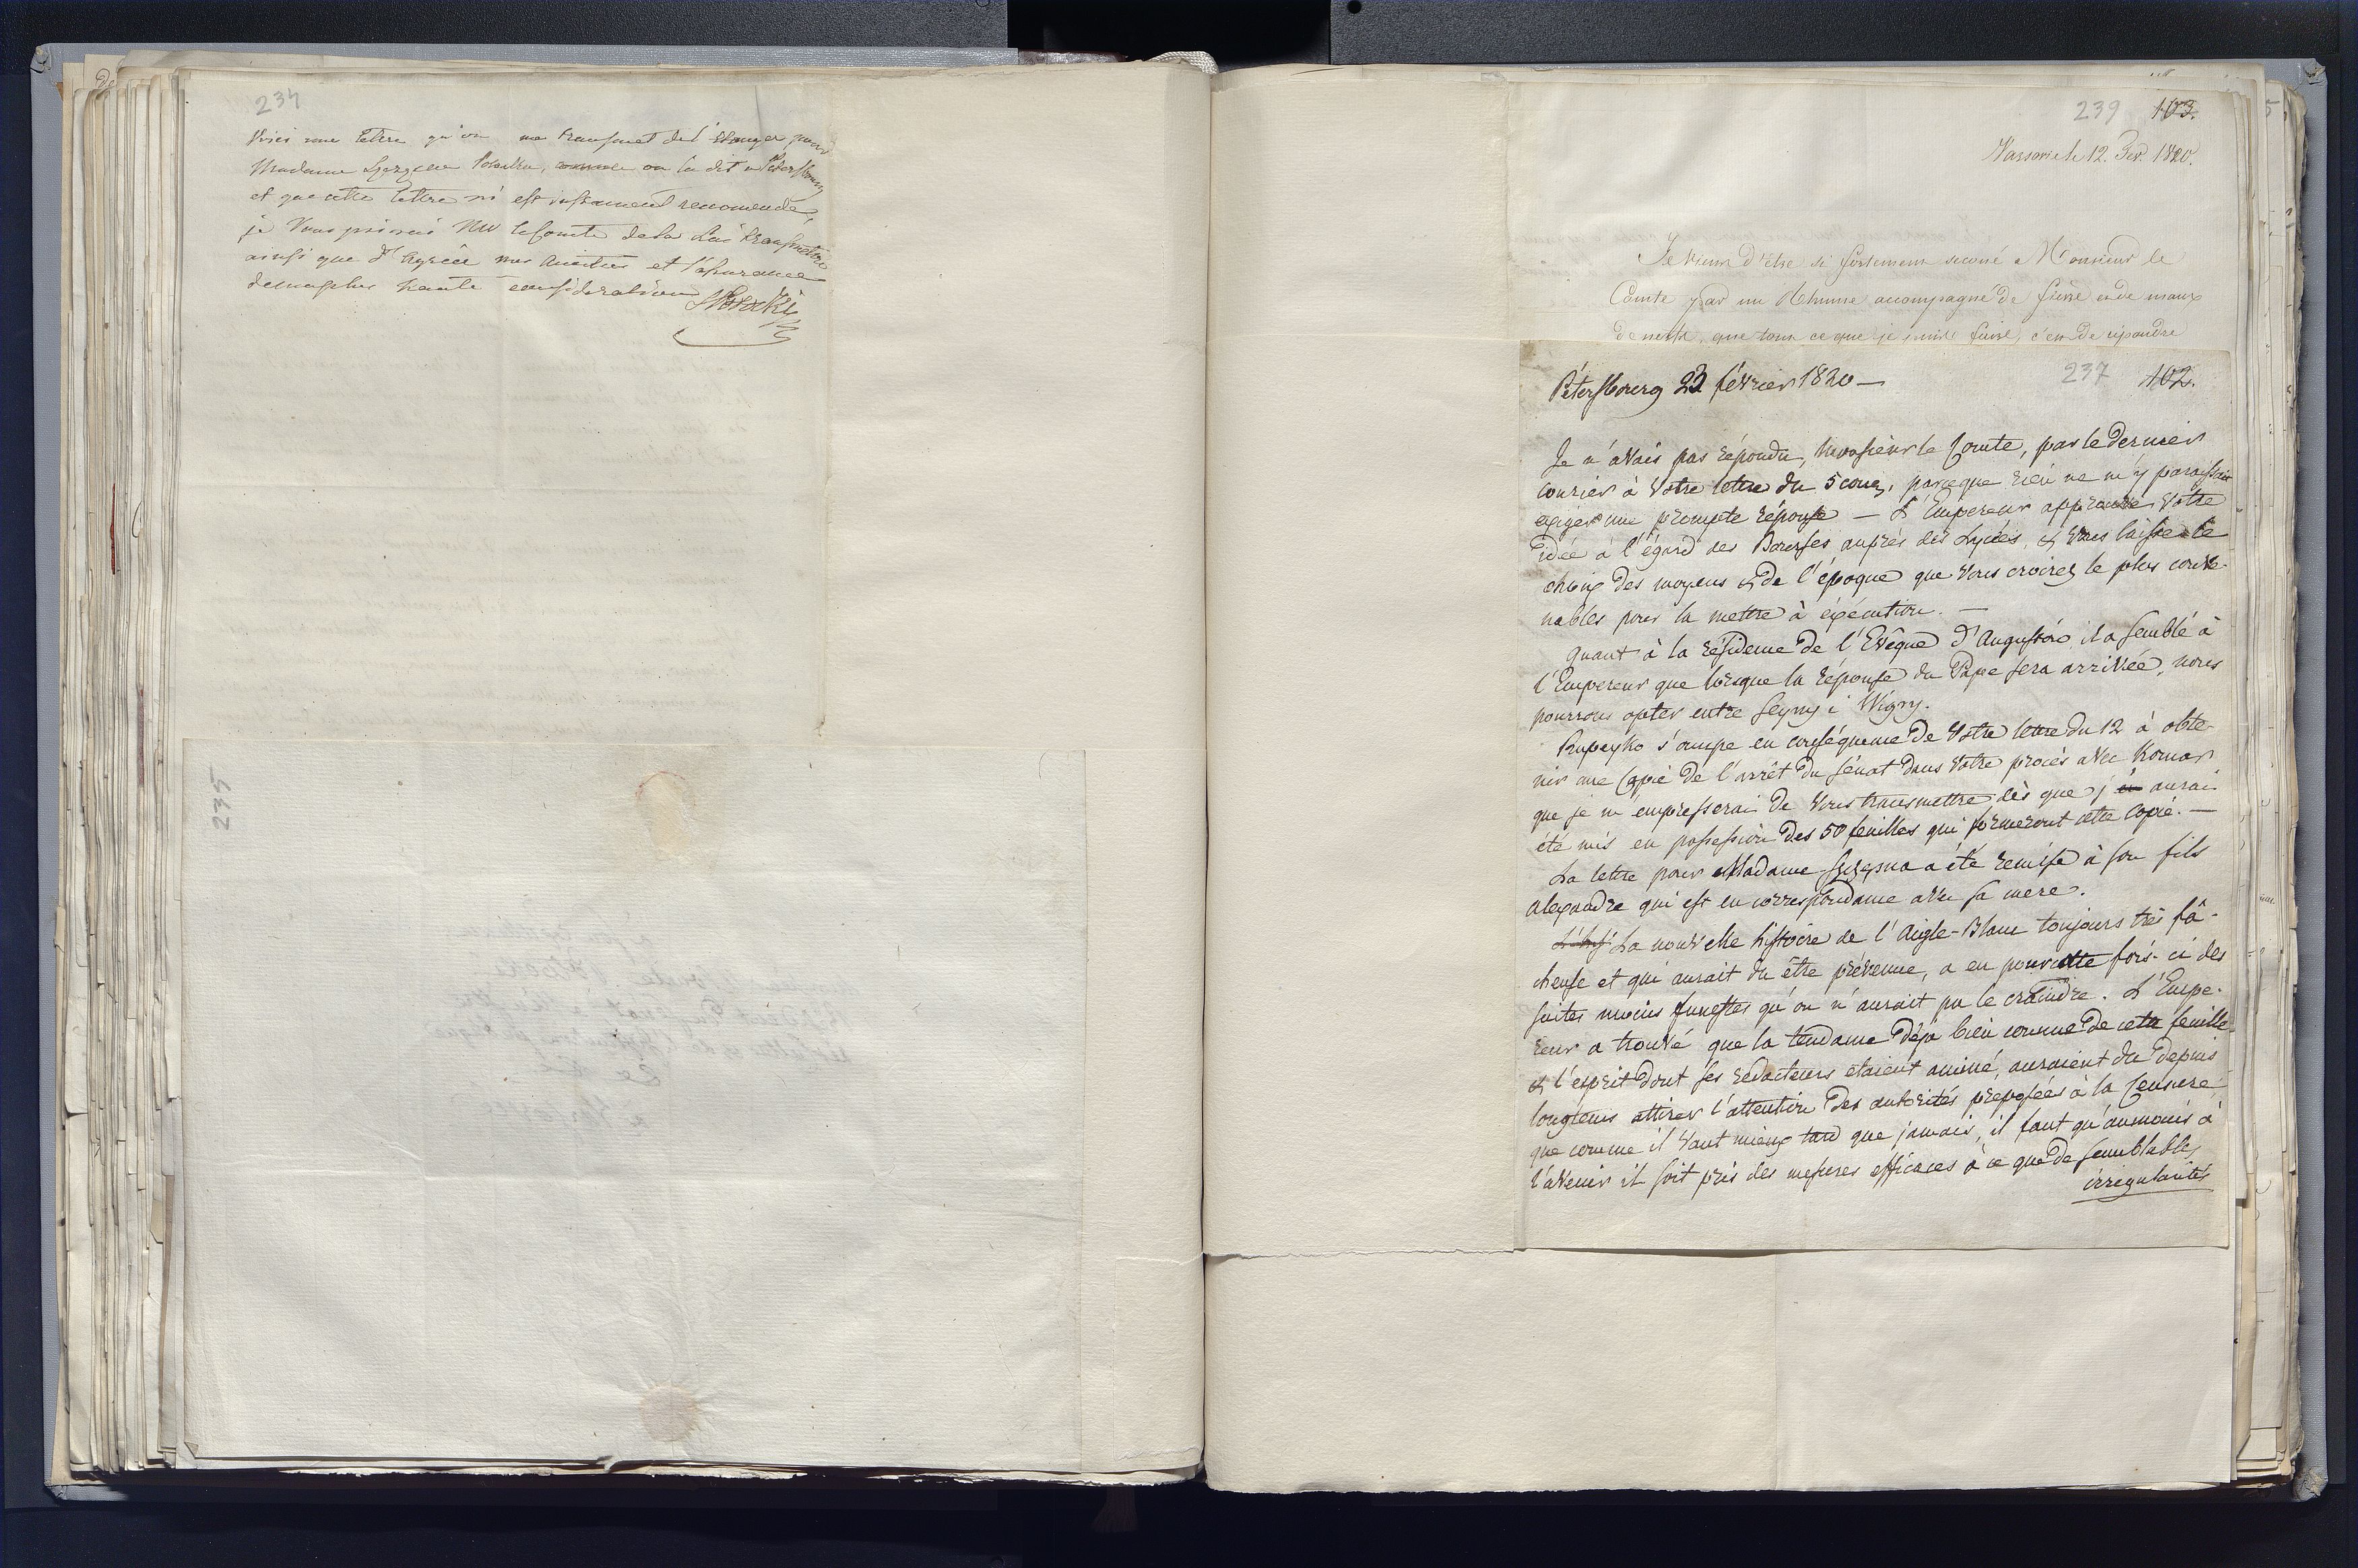 234
Voici une lettre qu'on me transmet de l'Etranger pour
Madame on la dit a Petersbourg
et que cette lettre m'est instamment recomendé,
je Vous prierai Mr le Comte de la Lui transmettre
ainsi que d'Agréer mes Amitiés et l'assurance
de ma plus haute consideration
235
239 103.
Varsovie le 12. 1820.
Je viens d'être si fortement secoué Monsieur le
Comte par un Rhume accompagné de fièvre et de maux
de nerfs, que tout ce que je puis faire, c'est de répondre
237 102.
Pétersbourg 22 février 1820 —
Je n'avais pas répondu, Monsieur le Comte, par le dernier
courier à Votre lettre du 5 cour, parceque rien ne m'y paraissait
exiger une prompte réponse — L'Empereur approuve Votre
idée à l'égard des Bourses auprès des Lycées, & Vous laisse le
choix des moyens & de l'époque que Vous croirez le plus conve-
nables pour la mettre à exécution. —
Quant à la résidence de l'Evêque d'Augustów il a semblé à
l'Empereur que lorsque la réponse du Pape sera arrivée, nous
pourrons opter entre Seyny i Wigry.
Rupeyko s'occupe en conséquence de Votre lettre du 12 à obte-
nir une Copie de l'arrêt du Sénat dans Votre procès avec Komar
que je m'empresserai de Vous transmettre dès que j'en aurai
été mis en possession des 50 feuilles qui formeront cette Copie. —
La lettre pour Madame a été remise à son fils
Alexandre qui est en correspondance avec sa mere.
La nouvelle histoire de l'Aigle-Blanc toujours très fâ-
cheuse et qui aurait du être prévenue, a eu pour cette fois-ci des
suites moins funestes qu'on n'aurait pu le craindre. L'Empe-
reur a trouvé que la tendance déja bien connue de cette feuille
& l'esprit dont ses rédacteurs étaient animé, auraient du depuis
longtems attirer l'attention des autorités préposées à la Censure,
que comme il vaut mieux tard que jamais, il faut qu'aumoins à
l'avenir il soit pris des mesures efficaces à ce que de semblables
irrégularités